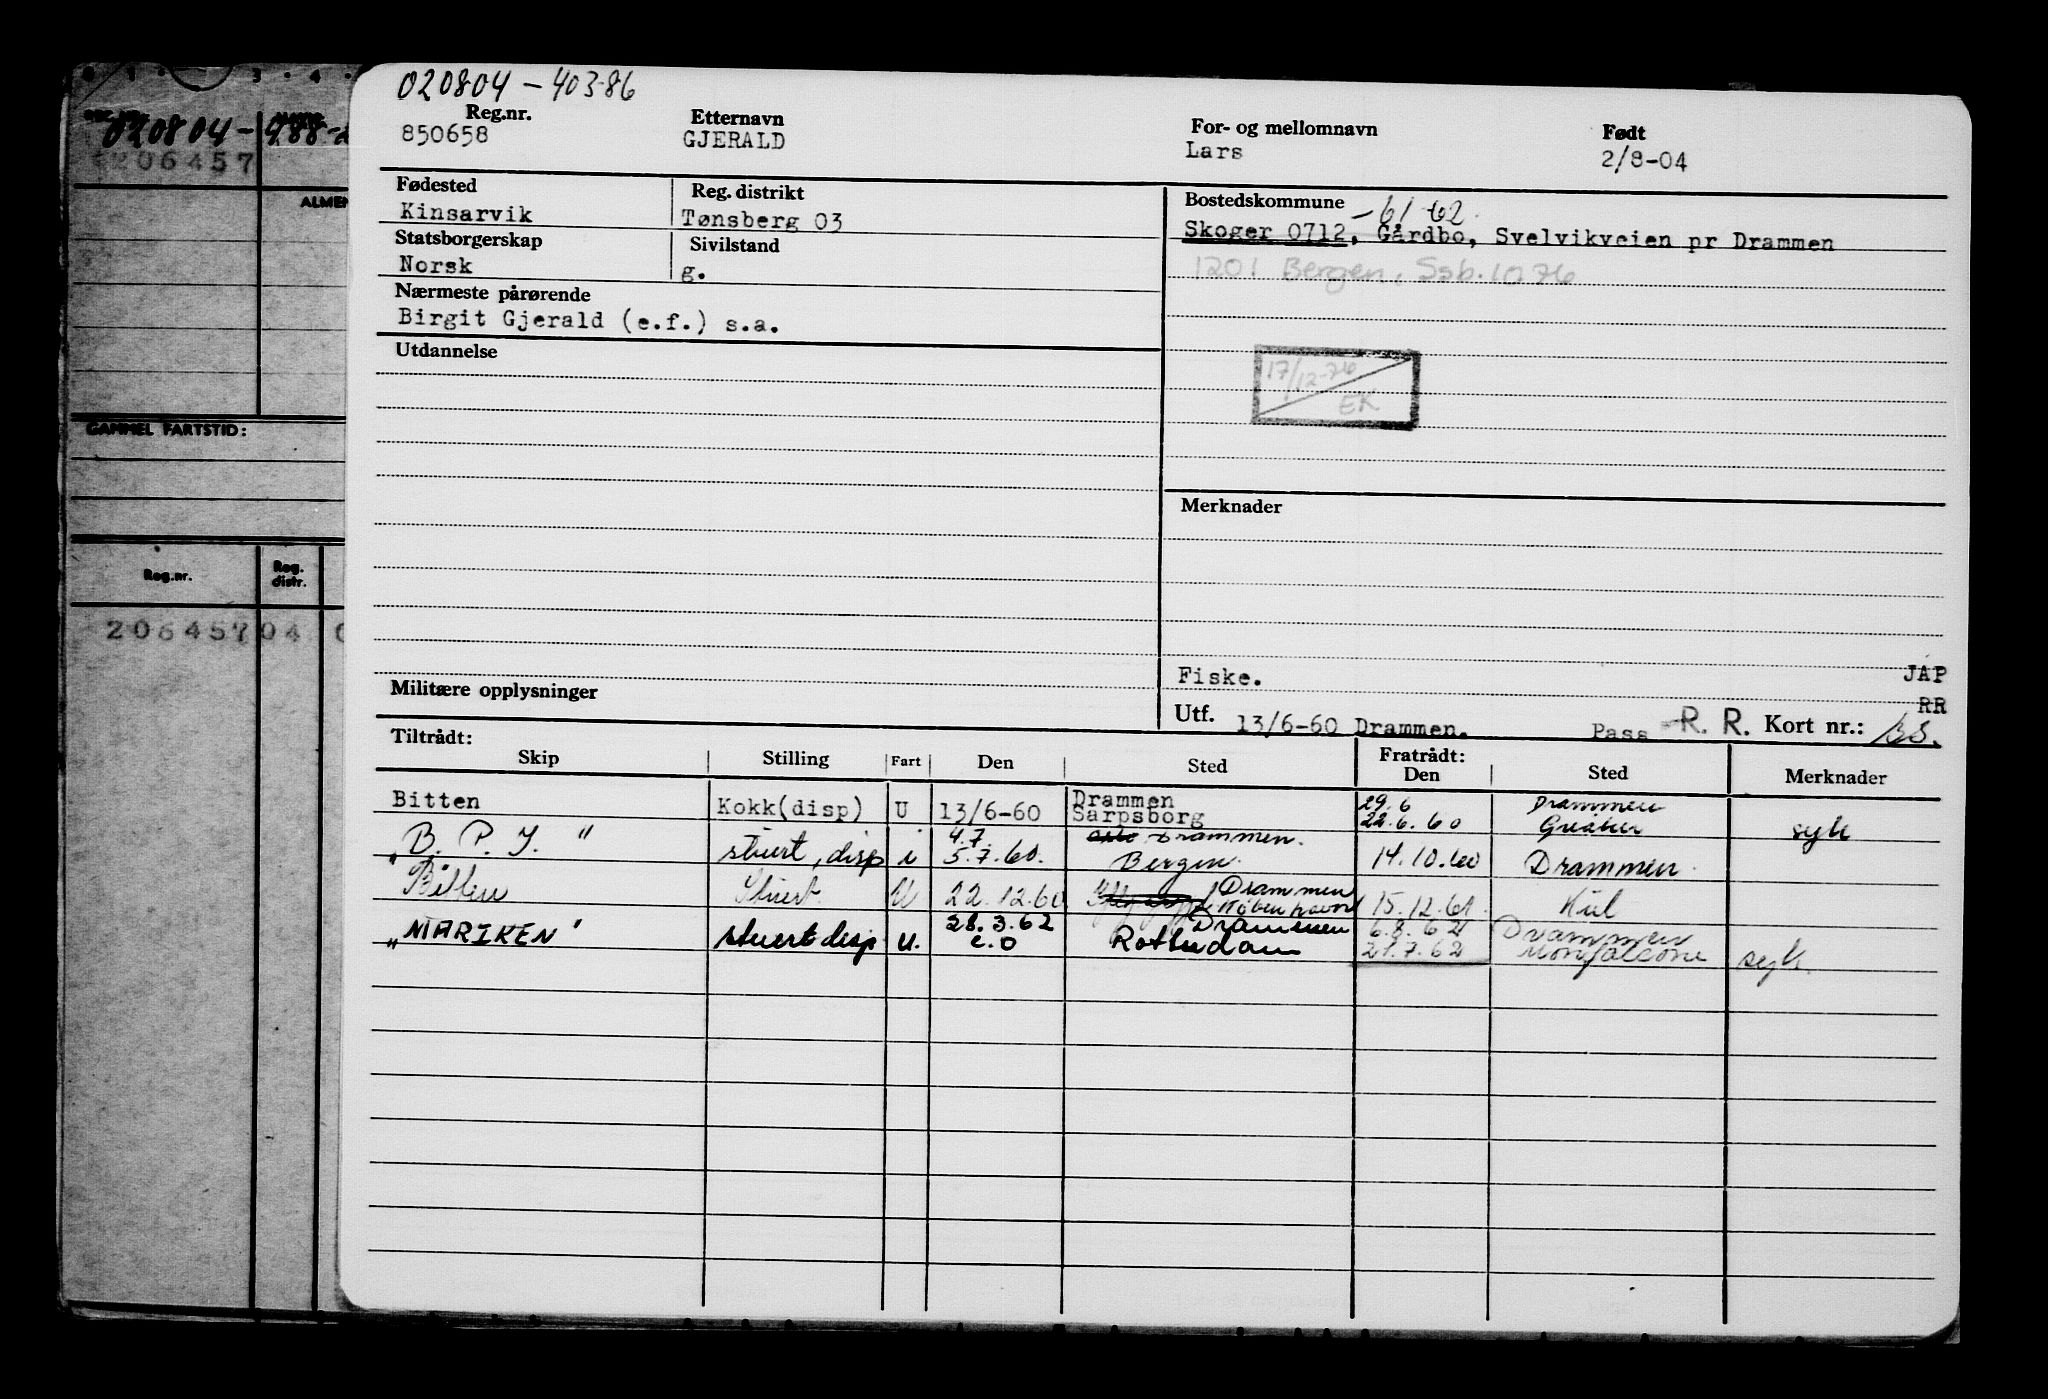 020804 - 40386
Reg.nr. Etternavn For- og mellomnavn Født
850658 GJERALD Lars 2/8-04
Fødested Reg. distrikt Bostedskommune
Kinsarvik Tønsberg 03 -61 62
Skoger 0712, Gårdbo, Svelvikveien pr Drammen
Statsborgerskap Sivilstand
Norsk g.
1201 Bergen, Ssb. 10.76
Nærmeste pårørende
Birgit Gjerald (e.f.) s.a.
Utdannelse
17/12-76
EK
Merknader
Fiske. JAP
Militære opplysninger RR
Utf. 13/6-60 Drammen. Pass R. R. Kort nr.: BS.
Tiltrådt: Fratrådt:
Skip Stilling Fart Den Sted Den Sted Merknader
Bitten Kokk(disp) U 13/6-60 Drammen 29.6 Drammen
Sarpsborg 22.6.60 Greåker syk
"B. P. J." stuert, disp i 4.7. Drammen.
5.7.60. Bergen. 14.10.60 Drammen.
Bitten Stuert U 22.12.60 Drammen
København 15.12.61 Kiel
"MARIKEN" stuert disp U. 28.3.62 Drammen 6.8.62 Drammen
e.o Rotterdam 21.7.62 Monfalcone syk.
020804 - 488-2
206457
ALMEN
GAMMEL FARTSTID:
Reg.nr. Reg. distr.
206457 04